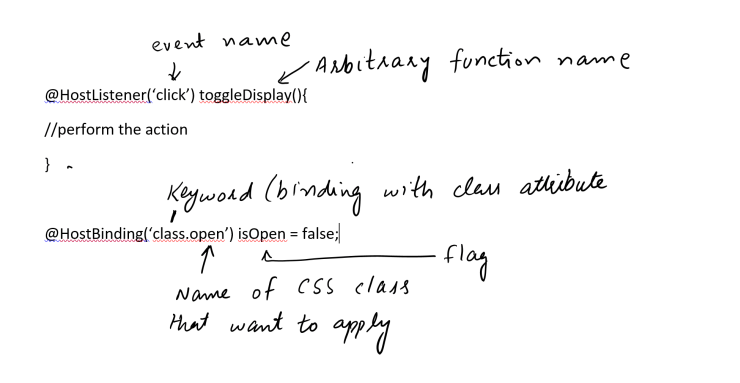 event name
Arbitrary function name
@HostListener(‘click’) toggleDisplay(){
//perform the action
}
Keyword (binding with class attribute
@HostBinding(‘class.open’) isOpen = false;
flag
Name of CSS class
that want to apply